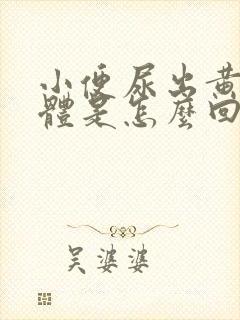 小便尿出黄
體是怎麼回
吴婆婆